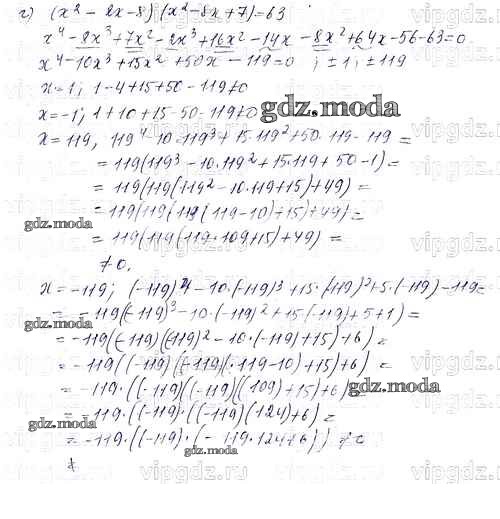 г) (x² - 2x - 8)(x² - 8x + 7) = 63
x⁴ - 8x³ + 7x² - 2x³ + 16x² - 14x - 8x² + 64x - 56 - 63 = 0
x⁴ - 10x³ + 15x² + 50x - 119 = 0 ; ± 1; ± 119
x = 1; 1 - 4 + 15 + 50 - 119 ≠ 0
x = -1; 1 + 10 + 15 - 50 - 119 ≠ 0
gdz.moda
x = 119, 119⁴ - 10·119³ + 15·119² + 50·119 - 119 =
= 119(119³ - 10·119² + 15·119 + 50 - 1) =
= 119(119(119² - 10·119 + 15) + 49) =
= 119(119(119(119 - 10) + 15) + 49) =
gdz.moda
= 119(119(119·109 + 15) + 49) =
≠ 0.
x = -119; (-119)⁴ - 10·(-119)³ + 15·(119)² + 5·(-119) - 119 =
= -119((-119)³ - 10·(-119)² + 15(-119) + 5 + 1) =
gdz.moda
= -119((-119)((-119)² - 10·(-119) + 15) + 6) =
= -119((-119)((-119)(-119 - 10) + 15) + 6) =
= -119·((-119)((-119)((109) + 15) + 6)
gdz.moda
= -119·((-119)·((-119)(124) + 6) =
gdz.moda
= -119·((-119)·(-119·124 + 6)) ≠ 0
gdz.moda